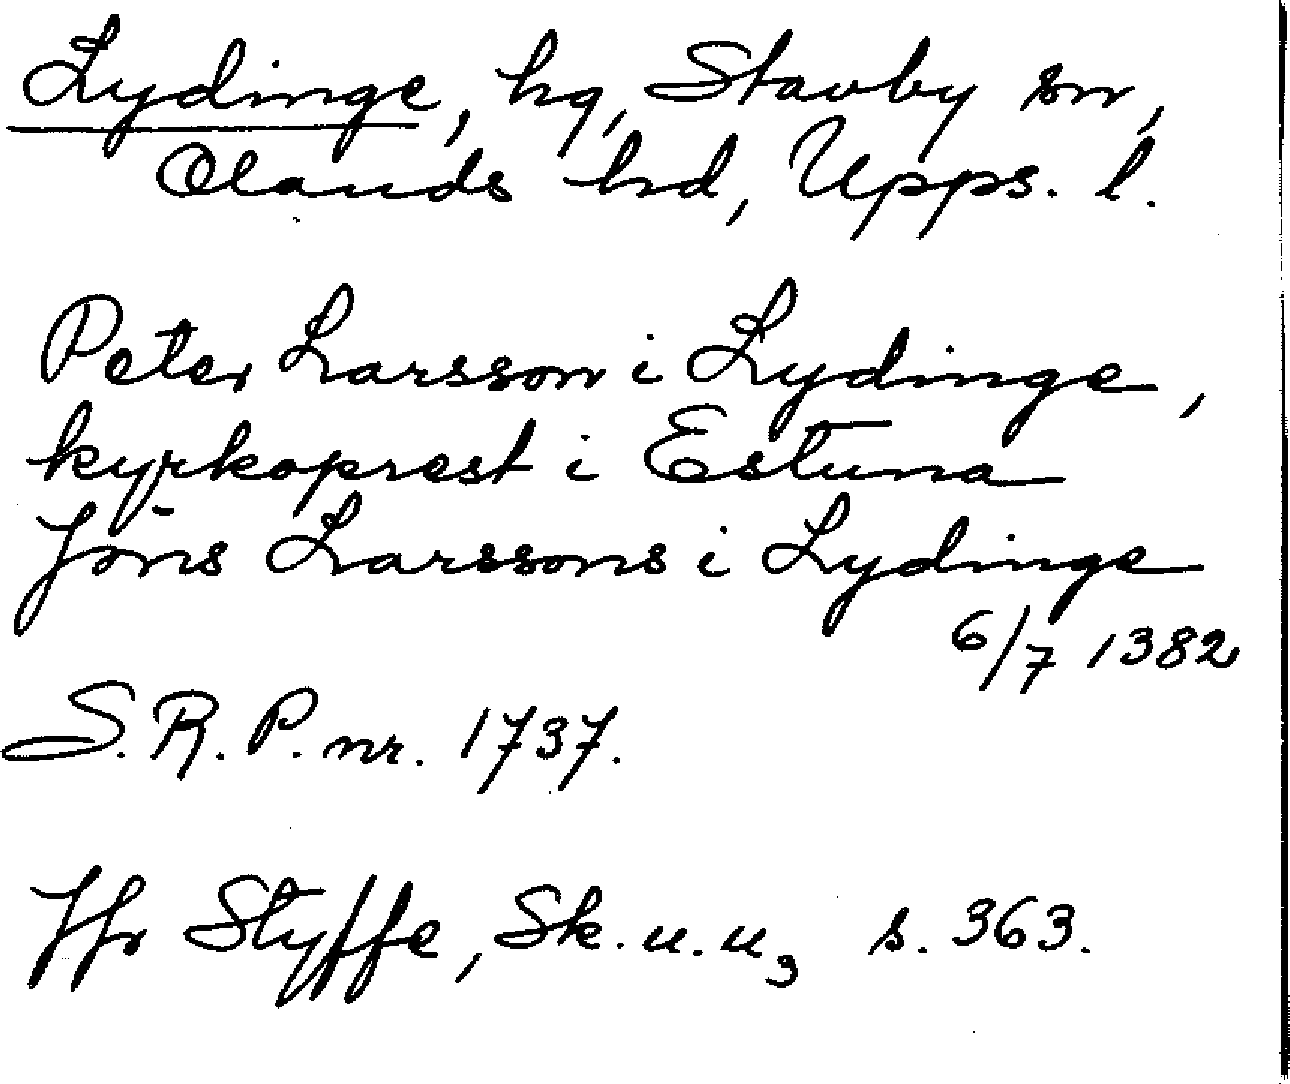 Lydinge, hg, Stavby sn,
Olands hd, Upps. l.
Peter Larsson i Lydinge,
kyrkoprest i Estuna
Jöns Larssons i Lydinge
6/7 1382
S.R.P. nr. 1737.
Jfr Styffe, Sk.u.u₃ s. 363.